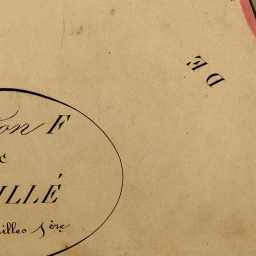 DE
on F
ILLÉ
illes 1ère